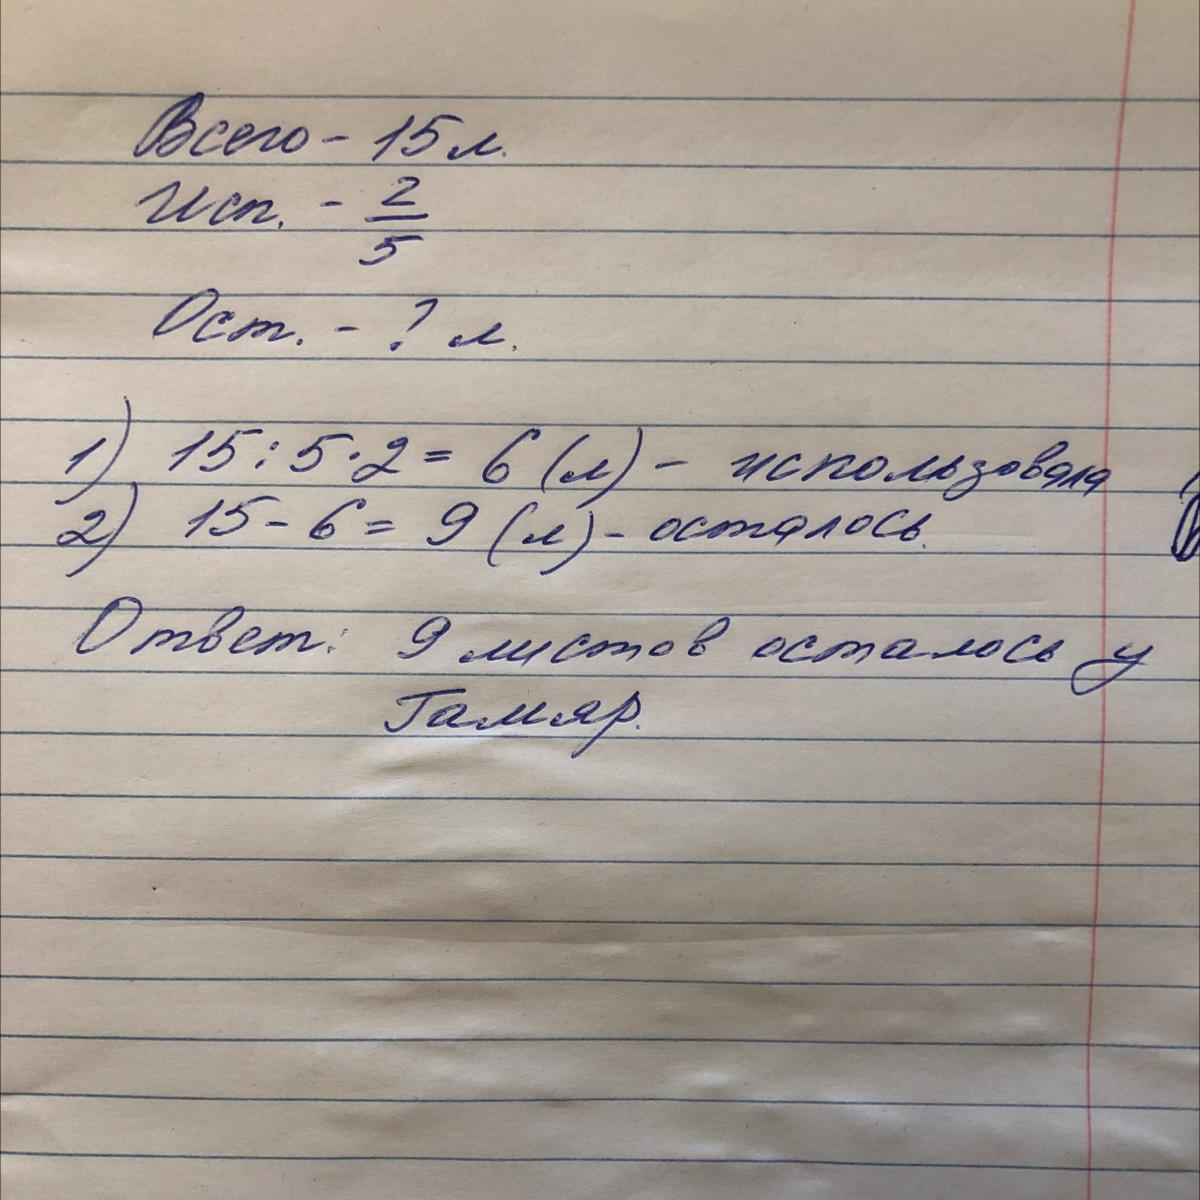 Всего - 15 л.
Исп. - 2/5
Ост. - ? л.
1) 15 : 5 · 2 = 6 (л) - использовала
2) 15 - 6 = 9 (л) - осталось.
Ответ: 9 листов осталось у
Тамяр.